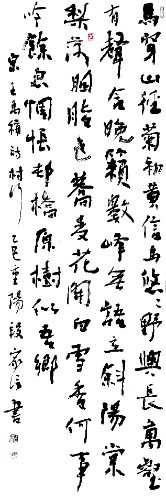 馬穿山徑菊初黃信馬悠悠野興長萬壑
有聲含晚籟數峰無語立斜陽棠
梨葉落胭脂色蕎麥花開白雪香何事
吟餘忽惆悵村橋原樹似吾鄉
宋王禹偁詩村行 乙巳重陽段家 書